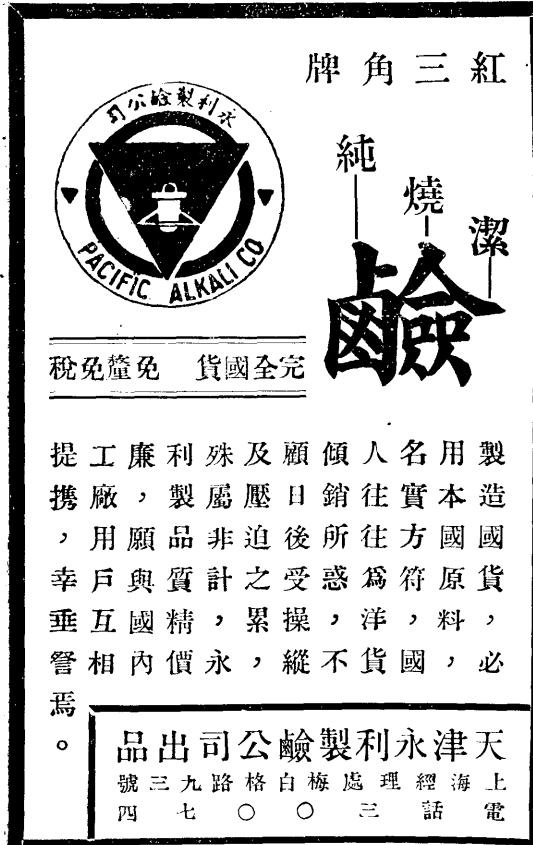 紅三角牌
潔
燒
純
鹼
永利製鹼公司
PACIFIC ALKALI CO
完全國貨 免釐免稅
製造國貨，必
用本國原料，
名實方符，國
人往往爲洋貨
傾銷所惑，不
顧日後受操縱
及壓迫之累，
殊屬非計，永
利製品質精價
廉，願與國內
工廠用戶互相
提携，幸垂詧焉。
天津永利製鹼公司出品
上海經理處梅白格路九三號
電話三〇〇七四